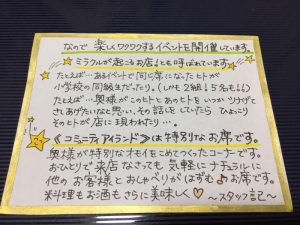 なので 楽しくワクワクするイベントを開催しています。
ミラクルが起こるお店♪とも呼ばれています。
たとえば…あるイベントで同じ席になったヒトが
小学校の同級生だったり。(しかも2組!5名も!!)
たとえば…奥様がこのヒトとあのヒトをいつかつなげて
さしあげたいなと思い、その話をしていたらひょっこり
そのヒトが店に現われたり…。
《コミュニティアイランド》は特別なお席です。
奥様が特別なオモイをこめてつくったコーナーです。
おひとりでご来店なさっても、気軽にナチュラルに
他のお客様とおしゃべりがはずむ♪お席です。
料理もお酒もさらに美味しく♡ ～スタッフ記～